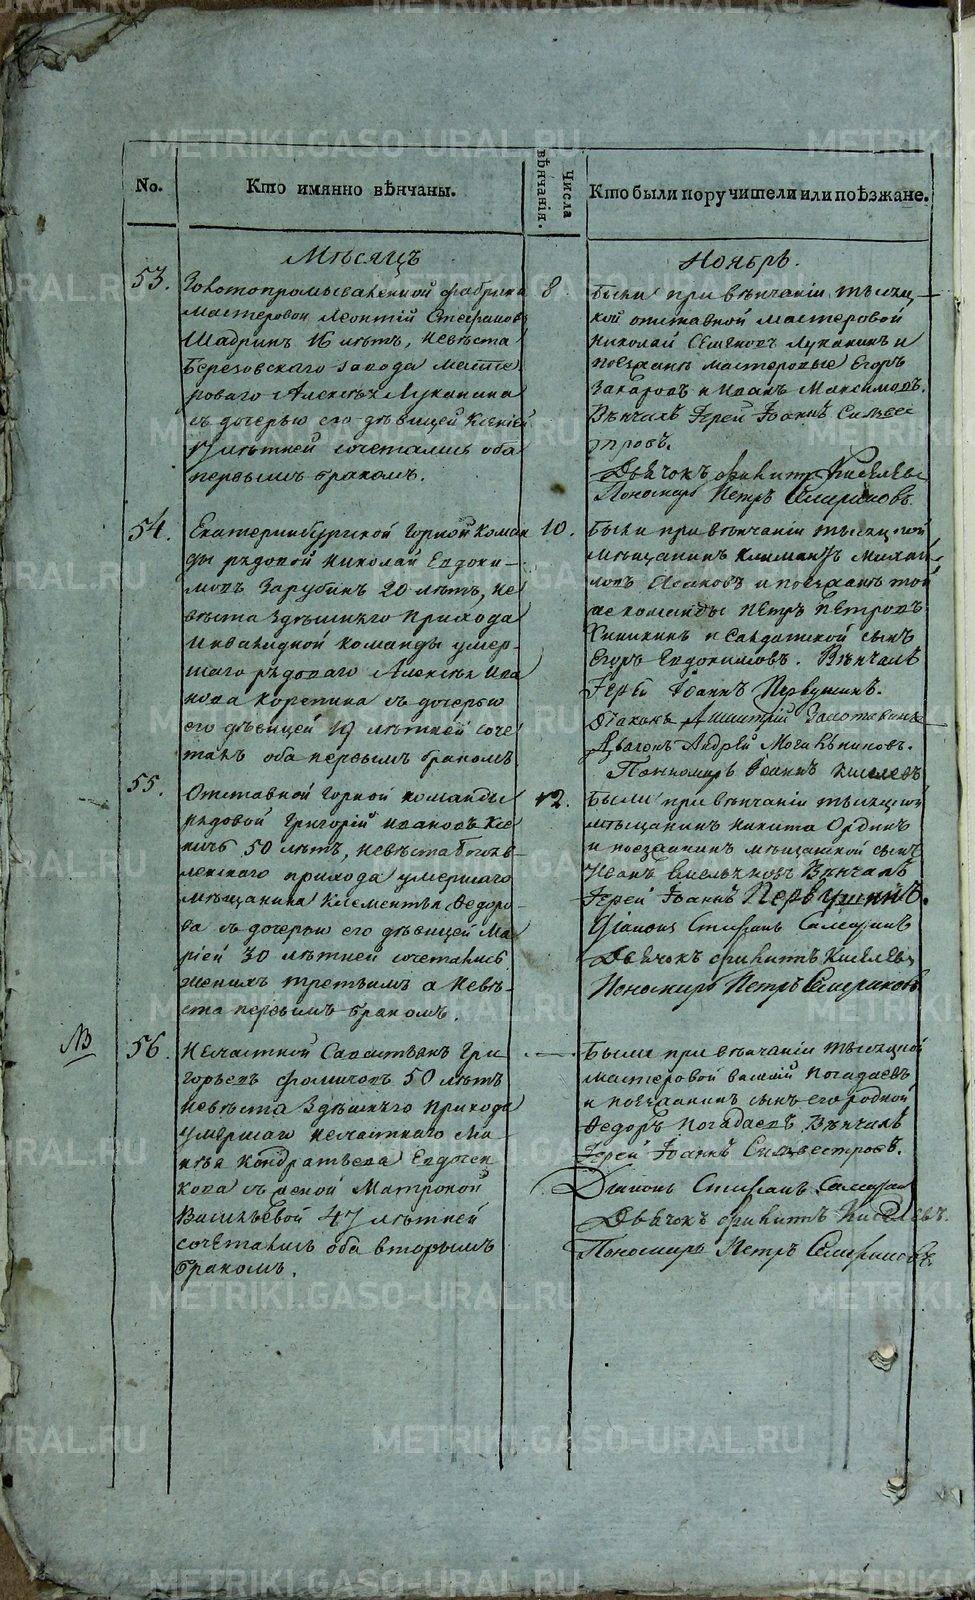 No.
Кто имянно вѣнчаны.
Числа вѣнчанія.
Кто были поручители или поѣзжане.
Мѣсяцъ
Ноябрь.
53.
Золотопромывательной фабрики
мастеровой Леонтій Стефановъ
Шадринъ 16 лѣтъ, невѣста
Березовскаго завода масте
роваго Алексѣя Луканина
съ дочерью его дѣвицей Ксеніей
17 лѣтней сочетались оба
первымъ бракомъ.
8
Были при вѣнчаніи тысяц-
кой отставной мастеровой
Николай Семеновъ Луканинъ и
поезжаны мастеровые Егоръ
Захаровъ и Иванъ Максимовъ.
Вѣнчалъ Іерей Іоаннъ Сильвес
тровъ.
Дьячокъ Филиппъ Киселевъ
Пономарь Петръ
54.
Екатеринбургской Горной Коман
ды рядовой Николай Евдоки-
мовъ Зарубинъ 20 лѣтъ, не
вѣста Здѣшняго Прихода
Инвалидной команды умер-
шаго рядоваго Алексѣя Ива
нова Корепина съ дочерью
его дѣвицей 19 лѣтней соче
тались оба первымъ бракомъ
10.
Были при вѣнчаніи тысяцкой
мѣщанинъ Климантъ Михай
ловъ Исаковъ и поезжанъ той
же команды Петръ Петровъ
и Салдатской сынъ
Егоръ Евдокимовъ. Вѣнчалъ
Іерей Іоаннъ Первушинъ.
Діаконъ Димитрій
Дьячокъ Андрей
Пономарь Іоаннъ Киселевъ
55.
Отставной Горной команды
рядовой Григорій Ивановъ
50 лѣтъ, невѣста Богояв-
ленскаго прихода умершаго
мѣщанина Клементья Федоро-
ва съ дочерью его дѣвицей Ма
ріей 30 лѣтней сочетались
женихъ третьимъ а невѣ-
ста первымъ бракомъ.
12.
Были при вѣнчаніи тысяцкой
мѣщанинъ Никита Ординъ
и поезжанинъ мѣщанской сынъ
Иванъ Емельяновъ Вѣнчалъ
Іерей Іоаннъ Первушинъ.
Діаконъ Стефанъ
Дьячокъ Филиппъ Киселевъ
Пономарь Петръ
NB
56.
Несчастной Савостьянъ Гри
горьевъ Фомичевъ 50 лѣтъ
невѣста Здѣшняго Прихода
умершаго несчастнаго Ма
твѣя Кондратьева
съ женой Матроной
Васильевой 47 лѣтней
сочетались оба вторымъ
бракомъ.
Были при вѣнчаніи тысяцкой
мастеровой Василій Погадаевъ
и поезжанинъ сынъ его родной
Федоръ Погадаевъ. Вѣнчалъ
Іерей Іоаннъ Сильвестровъ.
Діаконъ Стефанъ
Дьячокъ Филиппъ Киселевъ.
Пономарь Петръ
METRIKI.GASO-URAL.RU